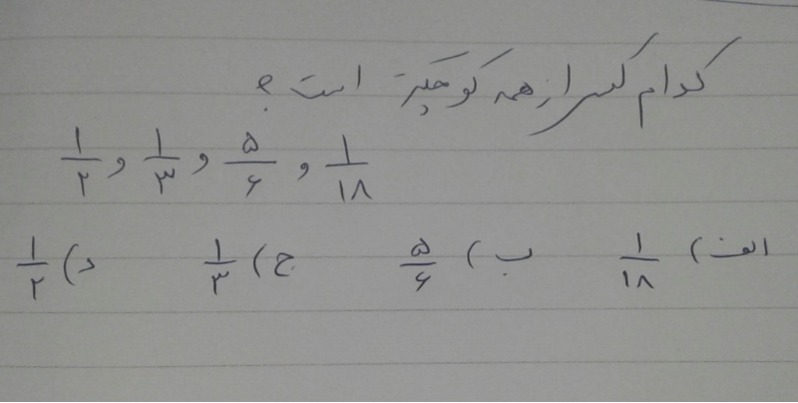 کدام کسر از همه کوچکتر است؟
۱/۱۸ , ۵/۶ , ۱/۳ , ۱/۲
الف) ۱/۱۸ ب) ۵/۶ ج) ۱/۳ د) ۱/۲